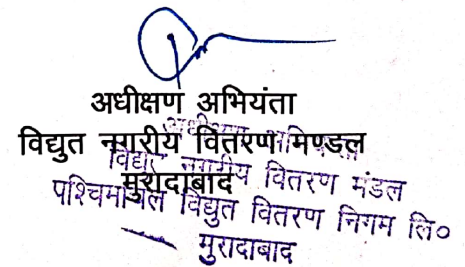 अधीक्षण अभियंता
विद्युत नगरीय वितरण मण्डल
मुरादाबाद
अधीक्षण अभियन्ता
विद्युत नगरीय वितरण मंडल
पश्चिमांचल विद्युत वितरण निगम लि०
मुरादाबाद